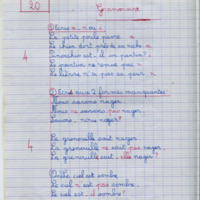 20
Grammaire
① Ecris a - mis -
La petite poule picore a
Le chien dort près de sa niche a
4
est - il en parlant
Le pantin ne pas
Le lièvre n'a pas eu peur
② Ecris aux 2 formes manquantes
Nous savons nager.
Nous ne savons pas nager.
Savons-nous nager?
4
La grenouille sait nager.
La grenouille ne sait pas nager.
La grenouille sait-elle nager?
ciel est sombre.
Le ciel n'est pas sombre.
Le ciel est-il sombre?